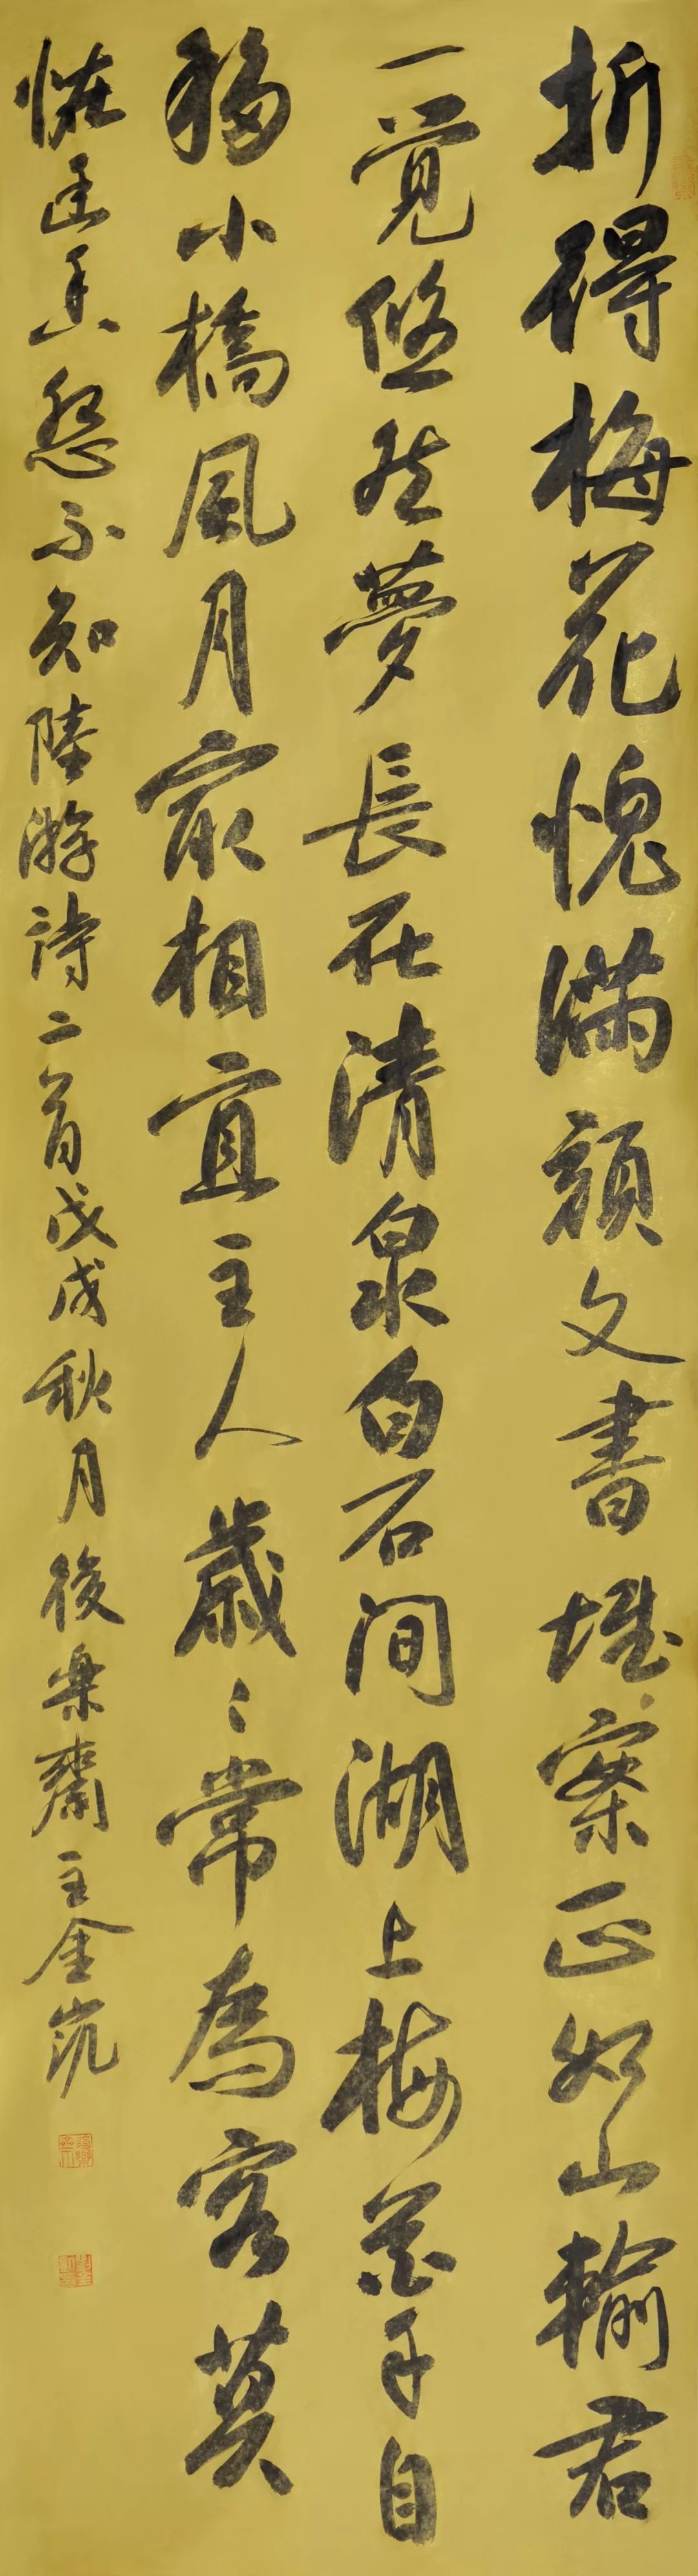 折得梅花愧滿顏文書堆案正如山輸君
一覺悠然夢長在清泉白石間湖上梅花手自
移小橋風月冣相宜主人歲々常為客莫
恠幽香怨不知陸游詩二首戊戌秋月後樂齋主金凯